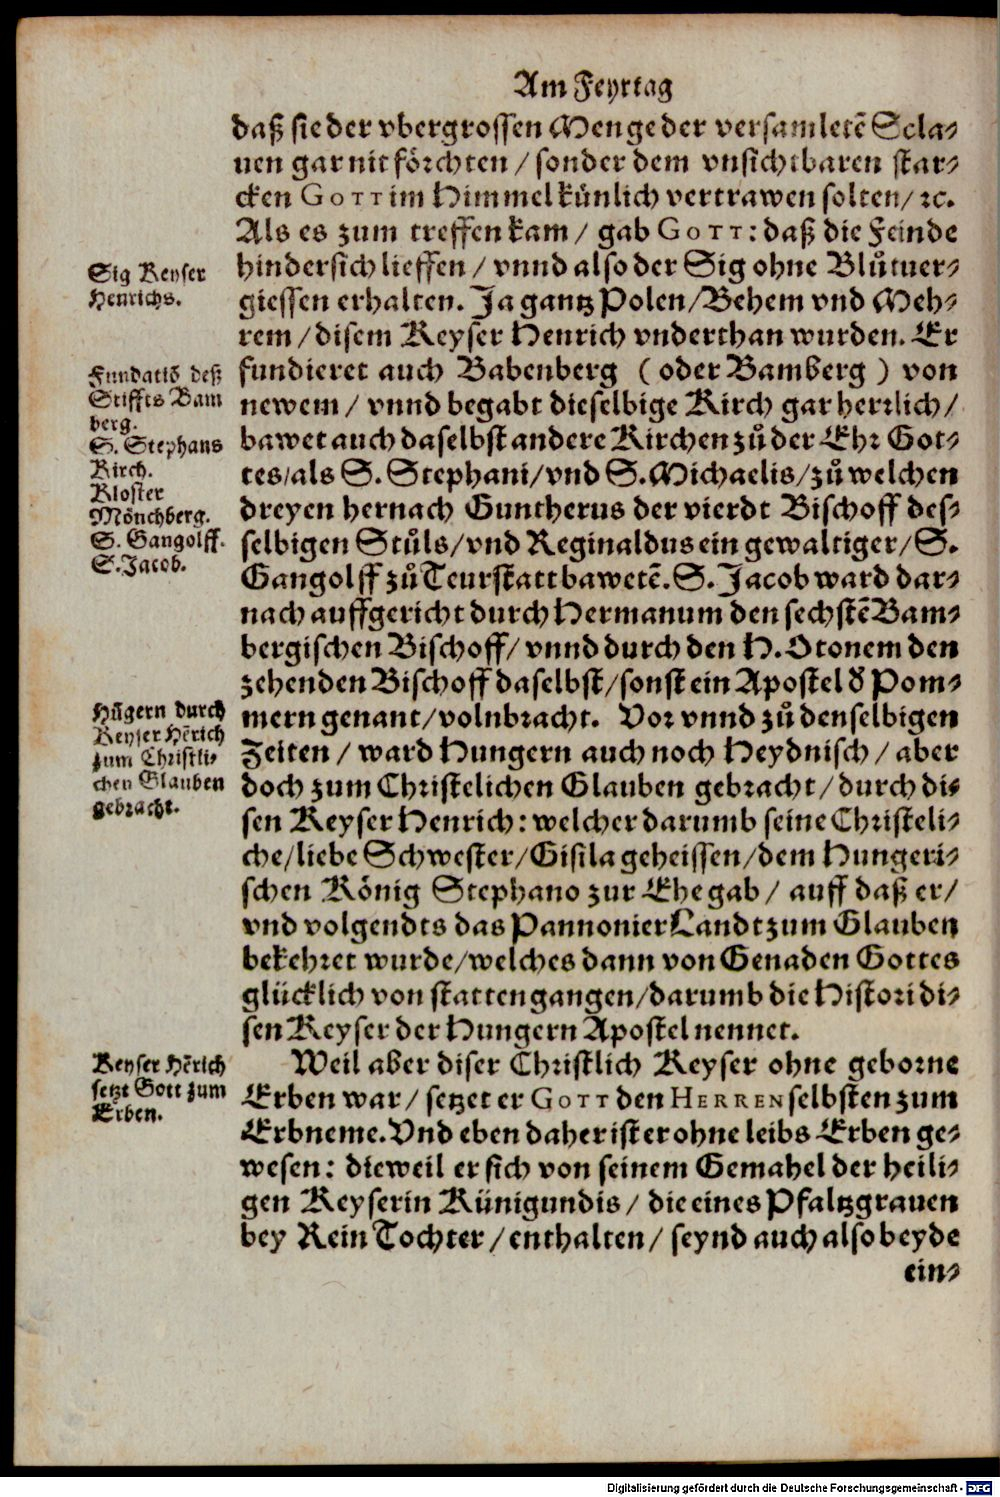 Am Feyrtag
daß sie der vbergrossen Menge der versamletẽ Scla⸗
uen gar nit förchten / sonder dem vnsichtbaren star⸗
cken GOTT im Himmel künlich vertrawen solten / ꝛc.
Als es zum treffen kam / gab GOTT: daß die Feinde
hindersich lieffen / vnnd also der Sig ohne Blůtuer⸗
giessen erhalten. Ja gantz Polen / Behem vnd Meh⸗
rem / disem Keyser Henrich vnderthan wurden. Er
fundieret auch Babenberg ( oder Bamberg ) von
newem / vnnd begabt dieselbige Kirch gar herrlich /
bawet auch daselbst andere Kirchen zů der Ehr Got⸗
tes / als S. Stephani / vnd S. Michaelis / zů welchen
dreyen hernach Guntherus der vierdt Bischoff des⸗
selbigen Stůls / vnd Reginaldus ein gewaltiger / S.
Gangolff zů Teurstatt bawetẽ. S. Jacob ward dar⸗
nach auffgericht durch Hermanum den sechstẽ Bam⸗
bergischen Bischoff / vnnd durch den H. Otonem den
zehenden Bischoff daselbst / sonst ein Apostel d̕ Pom⸗
mern genant / volnbracht. Vor vnnd zů denselbigen
Zeiten / ward Hungern auch noch Heydnisch / aber
doch zum Christelichen Glauben gebracht / durch di⸗
sen Keyser Henrich: welcher darumb seine Christeli⸗
che / liebe Schwester / Gisila geheissen / dem Hungeri⸗
schen König Stephano zur Ehe gab / auff daß er /
vnd volgendts das Pannonier Landt zum Glauben
bekehret wurde / welches dann von Genaden Gottes
glücklich von statten gangen / darumb die Histori di⸗
sen Keyser der Hungern Apostel nennet.
Weil aber diser Christlich Keyser ohne geborne
Erben war / setzet er GOTT den HERREN selbsten zum
Erbneme. Vnd eben daher ist er ohne leibs Erben ge⸗
wesen: dieweil er sich von seinem Gemahel der heili⸗
gen Keyserin Künigundis / die eines Pfaltzgrauen
bey Rein Tochter / enthalten / seynd auch also beyde
ein⸗
Sig Keyser
Henrichs.
Fundatiõ deß
Stiffts Bam
berg.
S. Stephans
Kirch.
Kloster
Mönchberg.
S. Gangolff.
S. Jacob.
Hũgern durch
Keyser Hẽrich
zum Christli⸗
chen Glauben
gebracht.
Keyser Hẽrich
setzt Gott zum
Erben.
Digitalisierung gefördert durch die Deutsche Forschungsgemeinschaft - DFG